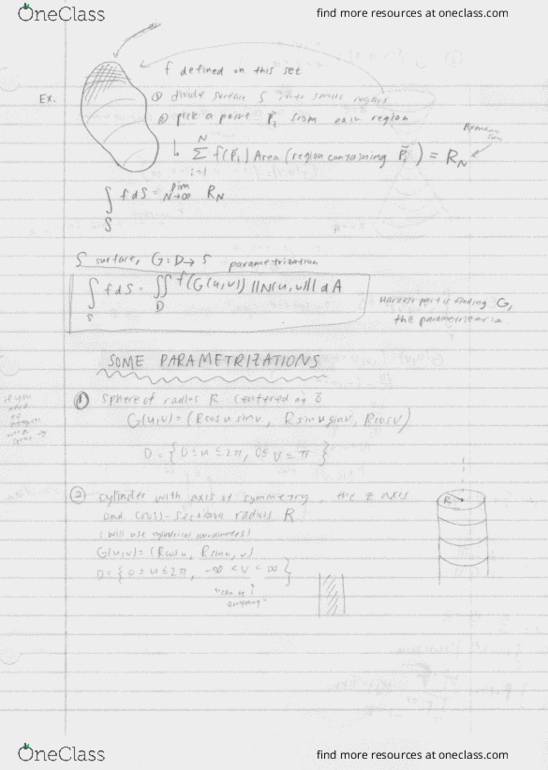 OneClass
find more resources at oneclass.com
f defined on this set
Ex.
① divide surface S into small regions
② pick a point P⃗ᵢ from each region
Riemann sum
↳ N Σ i=1 f(Pᵢ) Area (region containing P⃗ᵢ) = R_N
∫_S f dS = lim N→∞ R_N
S surface, G: D → S parametrization
∫_S f dS = ∬_D f(G(u,v)) ||N(u,v)|| dA
Hardest part is finding G,
the parametrization
SOME PARAMETRIZATIONS
① Sphere of radius R centered at 0⃗
if you
need
G(u,v) = (R cos u sin v, R sin u sin v, R cos v)
D = { 0 ≤ u ≤ 2π, 0 ≤ v ≤ π }
② cylinder with axis of symmetry, the z axis
and cross-section radius R
R
(will use cylindrical coordinates)
G(u,v) = (R cos u, R sin u, v)
D = { 0 ≤ u ≤ 2π, -∞ < v < ∞ }
"can be
anything"
OneClass
find more resources at oneclass.com